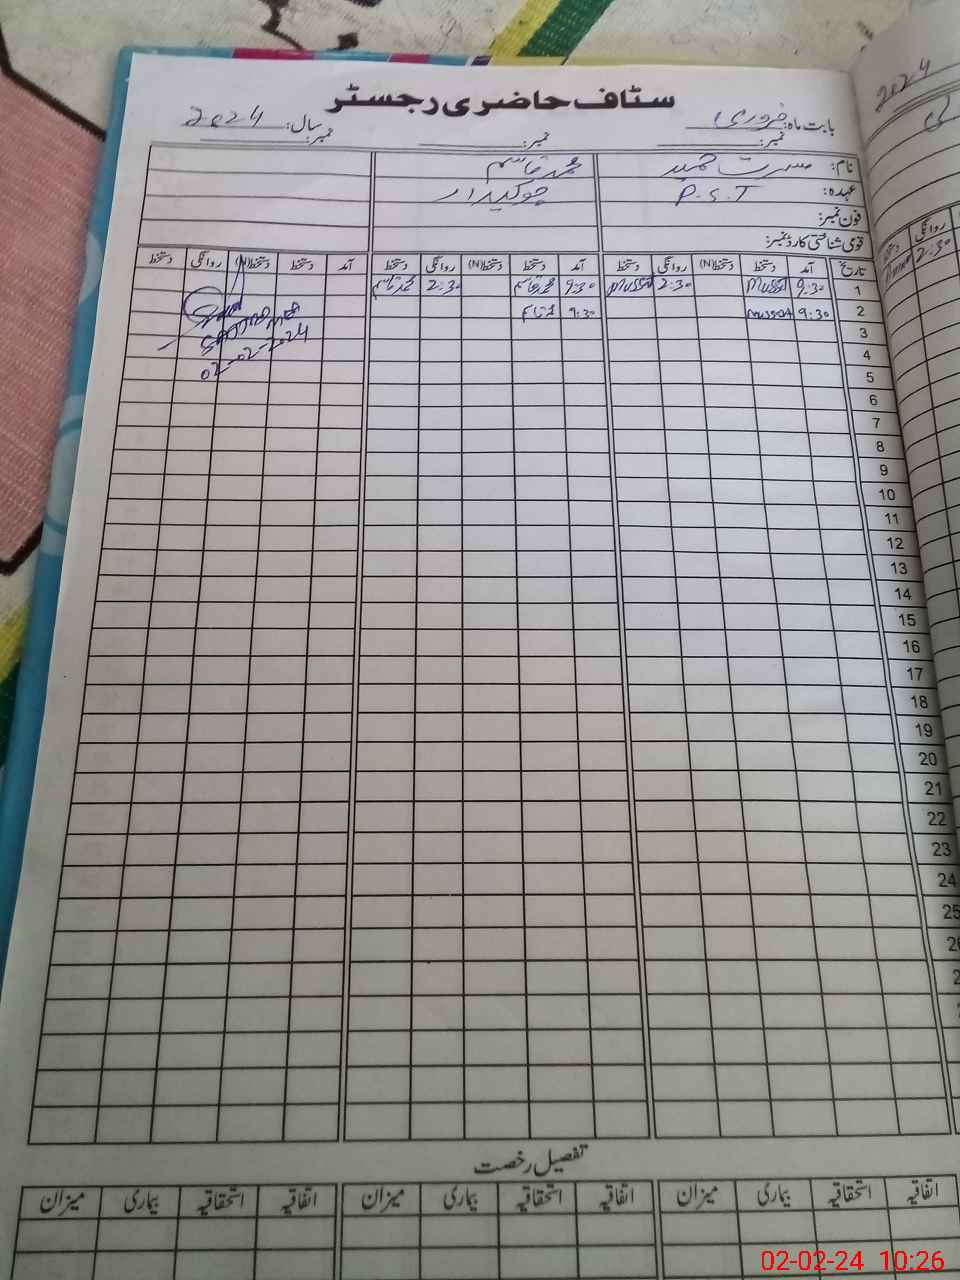 سٹاف حاضری رجسٹر
بابت ماہ: فروری سال: 2024
نمبر: نمبر: نمبر:
نام: مسرت حمید محمد قاسم
عہدہ: P.S.T چوکیدار
فون نمبر:
قومی شناختی کارڈ نمبر:
تاریخ آمد دستخط دستخط(N) روانگی دستخط آمد دستخط دستخط(N) روانگی دستخط آمد دستخط دستخط(N) روانگی دستخط
1 9:30 Mussa 2:30 Mussa 9:30 محمد قاسم 2:30 محمد قاسم
2 9:30 Mussa 9:30 قاسم
02-02-2024
3
4
5
6
7
8
9
10
11
12
13
14
15
16
17
18
19
20
21
22
23
24
25
تفصیل رخصت
اتفاقیہ استحقاقیہ بیماری میزان اتفاقیہ استحقاقیہ بیماری میزان اتفاقیہ استحقاقیہ بیماری میزان
2024
روانگی دستخط
2:30
02-02-24 10:26